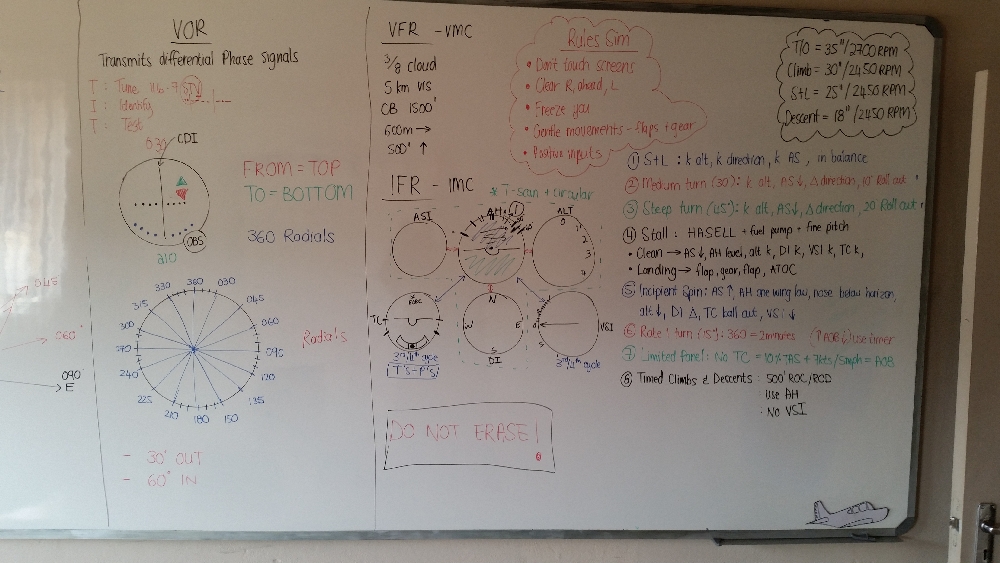 045
060
090
E
VOR
Transmits differential Phase Signals
T: Tune 116.7 STV
I: Identify
T: Test
030
CDI
FROM = TOP
TO = BOTTOM
OBS
210
360 Radials
330
360
030
315
045
300
060
270
090
240
120
225
135
210
180
150
Radials
- 30° OUT
- 60° IN
VFR - VMC
3/8 cloud
5 km VIS
CB 1500'
600m →
500' ↑
IFR - IMC
* T-scan + circular
ASI
AH
ALT
0
1
2
3
TC
N
W
E
S
DI
VSI
2nd/4th cycle
"T'S-P'S"
3rd/4th cycle
DO NOT ERASE!
Rules Sim
• Don't touch screens
• Clear R, ahead, L
• Freeze you
• Gentle movements - flaps + gear
• Positive inputs
T/O = 35"/2700 RPM
Climb = 30"/2450 RPM
S+L = 25"/2450 RPM
Descent = 18"/2450 RPM
① S+L : k alt, k direction, k AS, in balance
② Medium turn (30): k alt, AS↓, Δ direction, 15 Roll out
③ Steep turn (45): k alt, AS↓, Δ direction, 20 Roll out
④ Stall: HASELL + fuel pump + fine pitch
• Clean → AS↓, AH level, alt k, DI k, VSI k, TC k,
• Landing → flap, gear, flap, ATOC
⑤ Incipient Spin: AS↑, AH one wing low, nose below horizon,
alt↓, DI Δ, TC ball out, VSI ↓
⑥ Rate 1 turn (15°): 360 = 2 minutes (↑AOB), Use timer
⑦ Limited Panel: No TC = 10% TAS + 7kts/5mph = AOB
⑧ Timed Climbs & Descents : 500' ROC/ROD
: Use AH
: No VSI